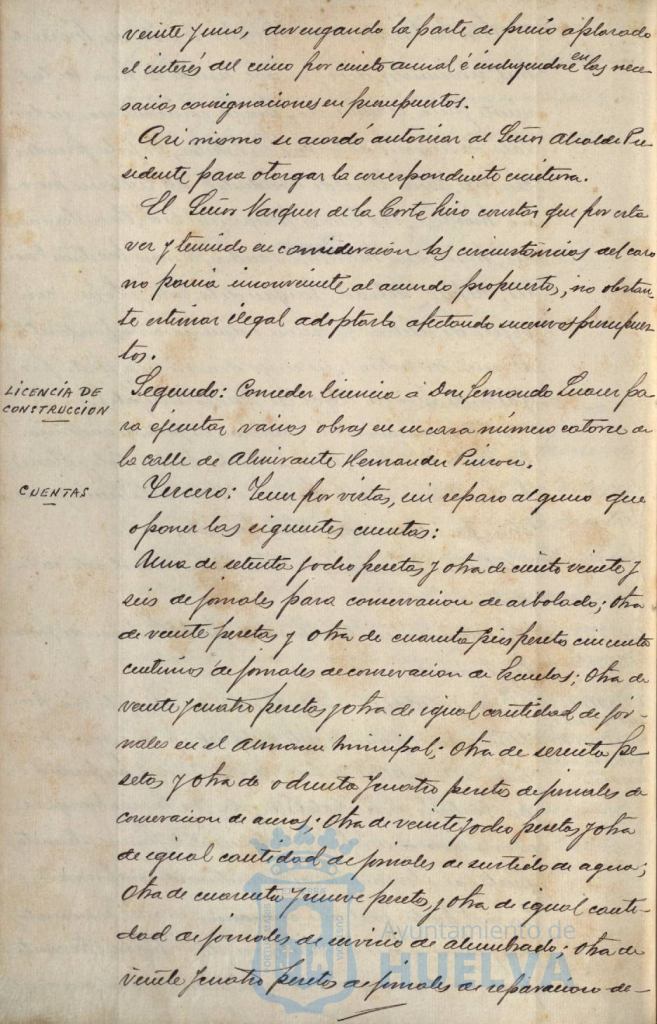 veinte y uno, devengando la parte de precio aplazado
el interés del cinco por ciento annual é incluyendose en las nece-
sarias consignaciones en presupuestos.
Asi mismo se acordó autorizar al Señor Alcalde Pre-
sidente para otorgar la correspondiente escritura.
El Señor Vazquez de la Corte hizo constar que por esta
vez y teniendo en consideración las circunstancias del caso
no ponia inconveniente al acuerdo propuesto, no obstan-
te estimar ilegal adoptarlo afectando sucesivos presupues-
tos.
LICENCIA DE
CONSTRUCCION
Segundo: Conceder licencia á Don Fernando Suarez pa-
ra ejecutar varias obras en su casa número catorce de
la calle de Almirante Hernandez Pinzon.
CUENTAS
Tercero: Tener por vistas, sin reparo alguno que
oponer las siguientes cuentas:
Una de setenta y ocho pesetas y otra de ciento veinte y
seis de jornales para conservacion de arbolado; otra
de veinte pesetas y otra de cuarenta y seis pesetas cincuenta
centimos de jornales de conservacion de Escuelas; otra de
veinte y cuatro pesetas y otra de igual cantidad de jor-
nales en el Almacen Municipal; otra de sesenta pe-
setas y otra de ochenta y cuatro pesetas de jornales de
conservacion de aceras; otra de veinte y ocho pesetas y otra
de igual cantidad de jornales de surtido de agua;
otra de cuarenta y nueve pesetas y otra de igual canti-
dad de jornales de servicio de alumbrado; otra de
veinte y cuatro pesetas de jornales de reparacion de-
Ayuntamiento de
HUELVA